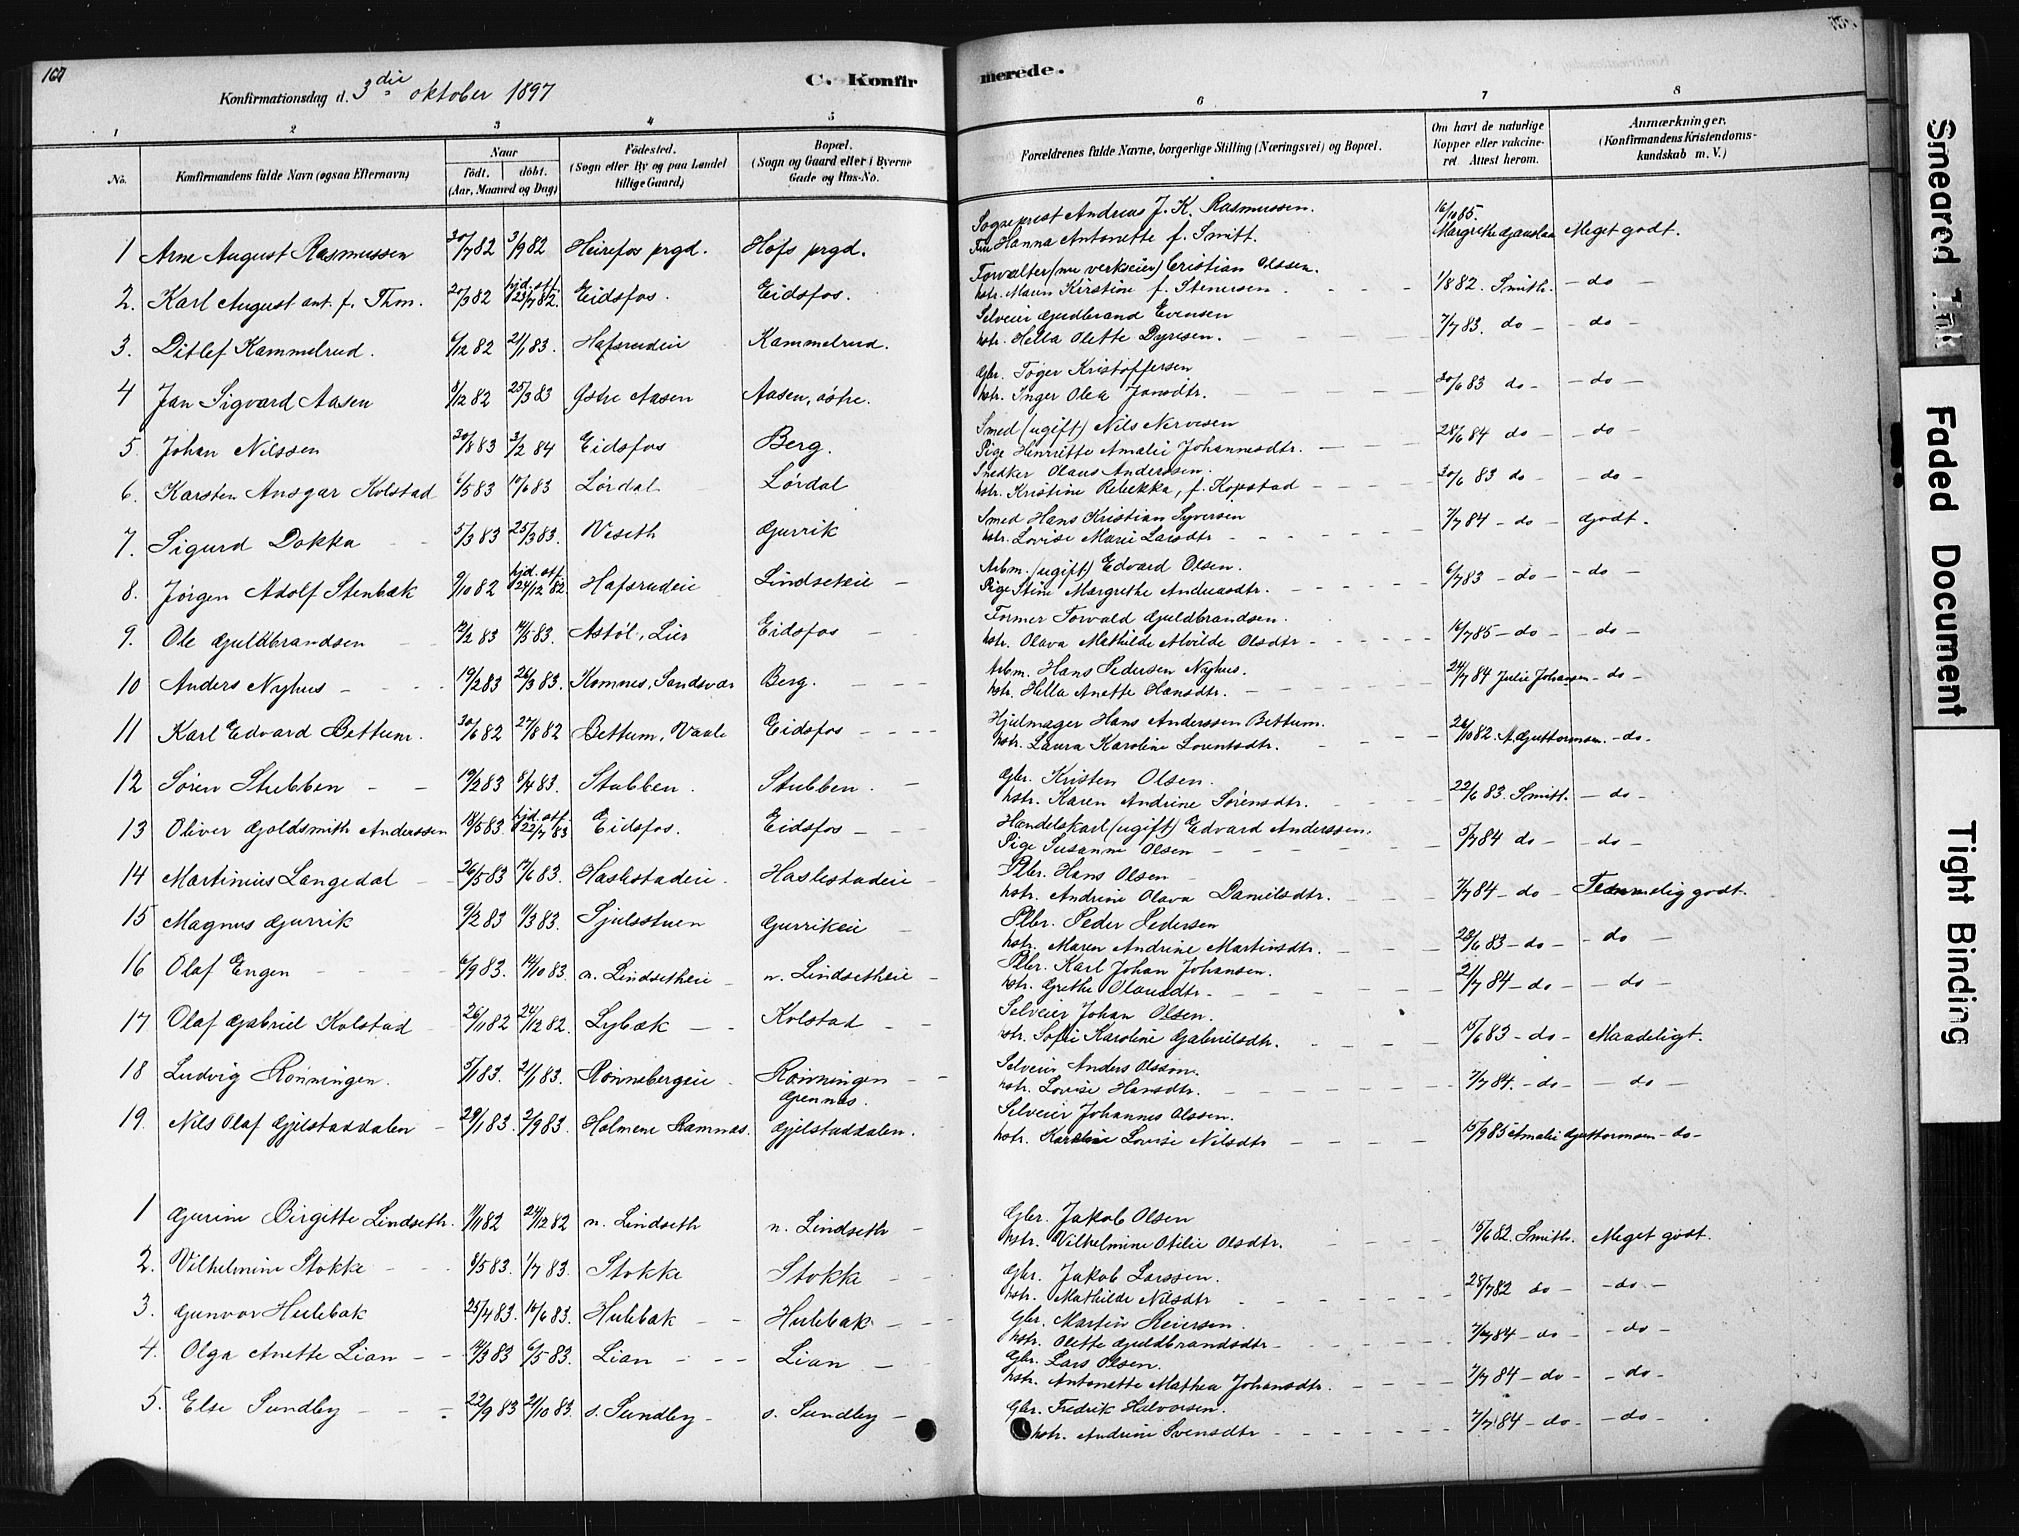 Konfirmationsdag d. 3die oktober 1897
C. Konfir merede.
1 2 3 4 5 6 7 8
No. Konfirmandens fulde Navn (ogsaa Efternavn) Naar født. døbt. (Aar, Maaned og Dag) Fødested. (Sogn eller By og paa Landet tillige Gaard) Bopæl. (Sogn og Gaard eller i Byerne Gade og Hus-No. Forældrenes fulde Navne, borgerlige Stilling (Næringsvei) og Bopæl. Om havt de naturlige Kopper eller vakcineret. Attest herom. Anmærkninger. (Konfirmandens Kristendomskundskab m. V.)
1 Arne August Rasmussen 30/7 82 3/9 82 Heirefos prgd. Hofs prgd. Sogneprest Andreas J. K. Rasmussen.
Fru Hanna Antonette f. Smitt. 16/10 85. Meget godt.
2. Karl August ant. f. Thm. 20/3 82 hjd. stf. 23/7 82. Eidsfos. Eidsfos. Forvalter (nu verkseier) Cristian Olssen.
hstr. Maren Kirstine f. Stenersen. 1/8 82. Smith. - do -
3. Ditlef Kammelrud. 6/12 82 21/1 83. Hafsrudeie Kammelrud. Selveier Gudbrand Evensen
hstr. Hella Olette Dyresen. 7/7 83. do - - do -
4 Jan Sigvard Aasen 8/12 82 25/3 83 Østre Aasen Aasen, østre. Gbr. Tøger Kristoffersen
hstr. Inger Olea Jansdtr. 30/6 83 do - - do -
5. Johan Nilssen 30/8 83 3/2 84 Eidsfos Berg. Smed (ugift) Nils Nervesen
Pige Henriette Amalie Johannesdtr. 28/6 84 do - - do -
6. Karsten Ansgar Kolstad 6/5 83 10/6 83 Lørdal Lørdal Snedker Olaus Anderssen.
hstr. Kristine Rebekka, f. Kopstad 30/6 83 do - - do -
7. Sigurd Dokka 5/3 83 25/3 83. Veseth Gurrik Smed Hans Kristian Syversen
hstr. Lovise Marie Larsdtr 7/7 84 - do - Godt.
8. Jørgen Adolf Stenbæk 9/10 82 hjd. stf. 24/12 82. Hafsrudeie Lindseteie Arbm. (ugift) Edvard Olsen.
Pige Stine Margrethe Andreasdtr. 6/7 83 - do - - do -
9. Ole Guldbrandsen 12/2 83 14/5 83. Astøl, Lier Eidsfos Former Torvald Guldbrandsen.
hstr. Olava Mathilde Alvilde Olsdtr 16/7 85 - do - - do -
10 Anders Nyhus 19/2 83 26/3 83. Komnes, Sandsvær Berg. Arbm. Hans Pedersen Nyhus.
hstr. Hella Anette Hansdtr. 24/7 84 Julie Johansen - do -
11 Karl Edvard Bettum. 30/6 82 27/8 82 Bettum, Vaale Eidsfos Hjulmager Hans Anderssen Bettum.
hstr. Laura Karoline Lorentsdtr. 26/10 82. A. Guttormsen. - do -
12 Søren Stubben 19/2 83 8/4 83. Stubben. Stubben. Gbr. Kristen Olsen.
hstr. Karen Andrine Sørensdtr. 22/6 83. Smitt. - do -
13 Oliver Goldsmith Anderssen 18/5 83. hjd. stf. 22/7 83 Eidsfos. Eidsfos Handelskarl (ugift) Edvard Anderssen.
Pige Susanne Olsen 5/7 84 do - - do -
14 Martinius Langedal 26/5 83 17/6 83. Haslestadeie. Haslestadeie Plbr. Hans Olsen
hstr. Andrine Olava Danielsdtr. 7/7 84 - do - Temmelig godt.
15 Magnus Gurrik 9/2 83 11/3 83. Sjulsstuen Gurrikeie Plbr. Peder Pedersen
hstr. Maren Andrine Martinsdtr. 28/6 83 - do - - do -
16 Olaf Engen 6/9 83. 14/10 83. n. Lindsetheie n. Lindsetheie Plbr. Karl Johan Johansen.
hstr. Grethe Olausdtr. 21/7 84 - do - - do -
17 Olaf Gabriel Kolstad 26/11 82 24/12 82. Lybæk Kolstad Selveier Johan Olsen.
hstr. Sofie Karoline Gabrielsdtr. 15/6 83 - do - Maadeligt.
18 Ludvig Rønningen. 5/1 83. 21/1 83. Rønnebergeie Rønningen Selveier Anders Olsson.
hstr. Lovise Hansdtr. 7/7 84. - do - - do -
19. Nils Olaf Gjelstaddalen 29/1 83. 2/9 83. Holmene Ramnæs. Gjennæs. Gjelstaddalen. Selveier Johannes Olssen.
hstr. Karoline Lovise Nilsdtr 15/9 85 Amalie Guttormsen - do -
1 Gurine Birgitte Lindseth. 1/11 82 24/12 82 n. Lindseth n. Lindseth Gbr. Jakob Olsen
hstr. Vilhelmine Otilie Olsdtr. 15/6 82. Smith. Meget godt.
2. Vilhelmine Stokke 8/5 83. 1/7 83. Stokke Stokke Gbr. Jakob Larssen.
hstr. Mathilde Nilsdtr 28/7 82 do - - do -
3. Gunvor Hulebak 25/4 83. 10/6 83. Hulebak Hulebak Gbr. Martin Reiersen.
hstr. Olette Guldbrandsdtr 7/7 84 - do - - do -
4. Olga Anette Lian 14/3 83 6/5 83. Lian Lian Gbr. Lars Olsen.
hstr. Antonette Mathea Johansdtr. 7/7 84 - do - - do -
5. Else Sundby 22/9 83 21/10 83. s. Sundby s. Sundby Gbr. Fredrik Halvorsen.
hstr. Andrine Svensdtr 7/7 84 - do - - do -
Smeared Ink
Faded Document
Tight Binding